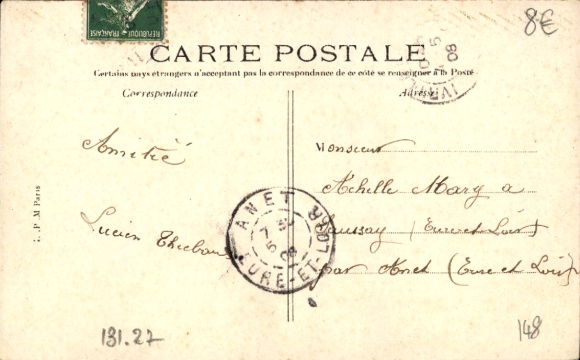 8€
REPUBLIQUE FRANÇAISE
CARTE POSTALE
Certains pays étrangers n'acceptant pas la correspondance de ce côté se renseigner à la Poste
Correspondance
Adresse
Amitié
Lucien
Monsieur
Achille Marg a
Saussay (Eure et Loir)
par Anet (Eure et Loir)
ANET
7
5
09
EURE-ET-LOIR
P.M Paris
131.27
148